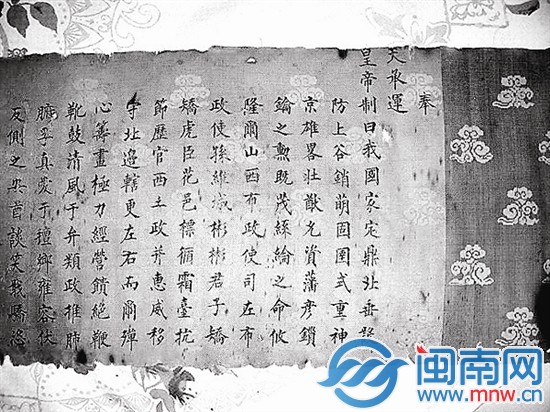 奉
天承運
皇帝制曰我國家定鼎北垂
防上谷銷萌固圉式重神
京雄畧壯猷允資藩彥鎖
鑰之勲既茂絲綸之命攸
隆爾山西布政使司左布
政使孫維城彬彬君子矯
矯虎臣花邑標循霜臺抗
節歷官西土政并惠威移
守北邉轄更左右而爾殫
心籌畫極力經營饋絕鞭
靴鼓清風于弁類政推肺
孚真愛于氊鄉雍容伏
反側之酋談笑戢驕恣
闽南网
www.mnw.cn